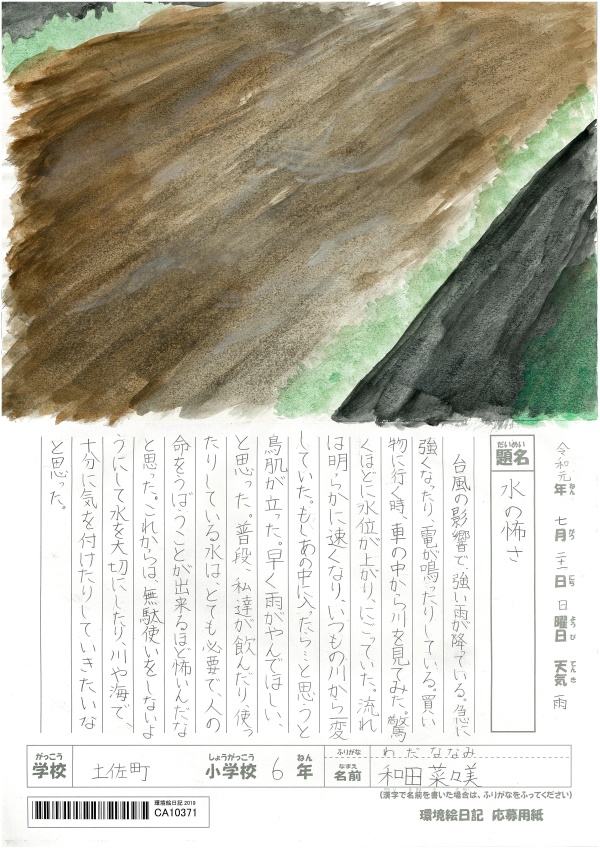 令和元年 七月 二十一日 日曜日 天気 雨
ねん がつ にち ようび てんき
だいめい
題名
水の怖さ
台風の影響で、強い雨が降っている。急に
強くなったり、雷が鳴ったりしている。買い
物に行く時、車の中から川を見てみた。驚
くほどに水位が上がり、にごっていた。流れ
は明らかに速くなり、いつもの川から一変
していた。もしあの中に入ったら…と思うと
鳥肌が立った。早く雨がやんでほしい、
と思った。普段、私達が飲んだり、使っ
たりしている水は、とても必要で、人の
命をうばうことが出来るほど怖いんだな
と思った。これからは、無駄使いをしないよ
うにして水を大切にしたり、川や海で、
十分に気を付けたりしていきたいな
と思った。
がっこう
学校 土佐町
しょうがっこう ねん
小学校 6年
ふりがな わだ ななみ
なまえ
名前 和田菜々美
(漢字で名前を書いた場合は、ふりがなをふってください)
環境絵日記 2019
CA10371
環境絵日記 応募用紙